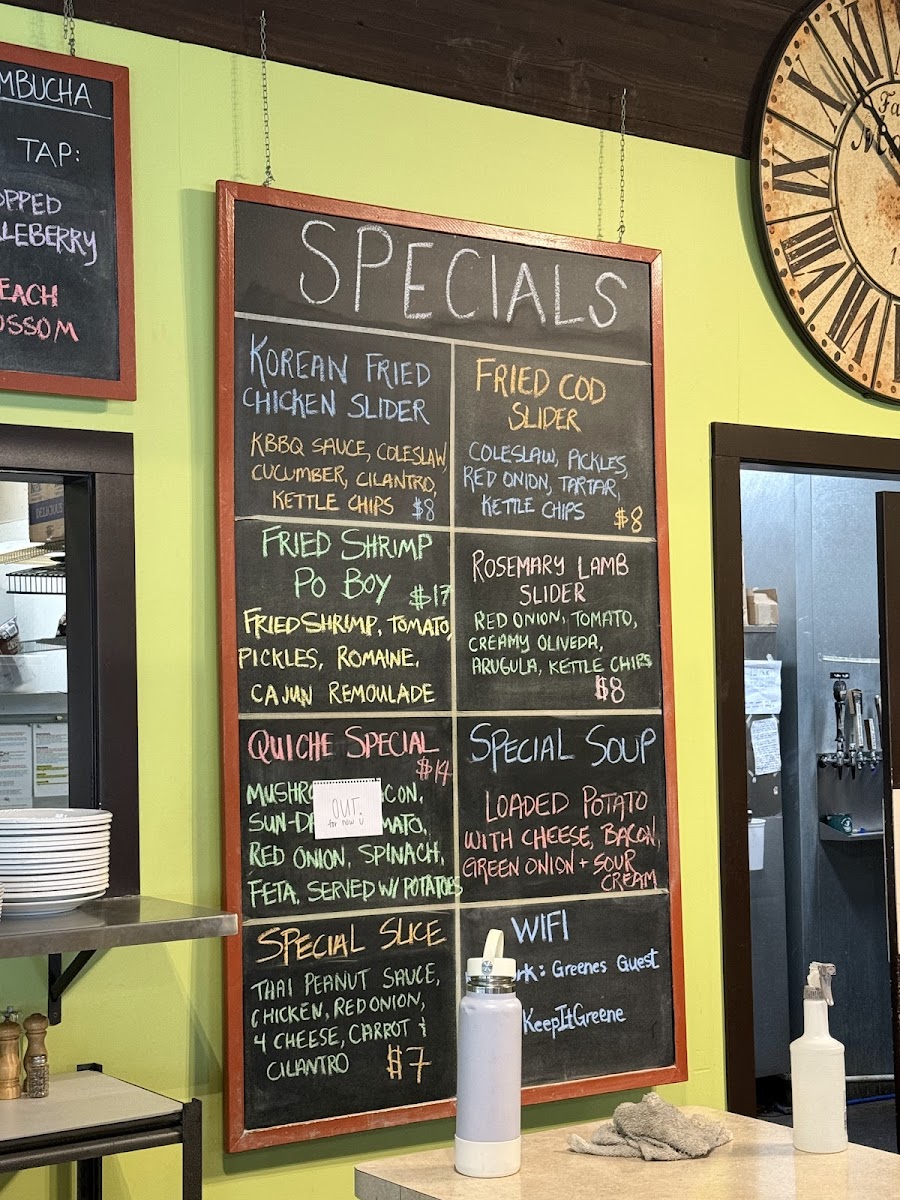 TAP:
SPECIALS
KOREAN FRIED
CHICKEN SLIDER
KBBQ SAUCE, COLESLAW
CUCUMBER, CILANTRO,
KETTLE CHIPS $8
FRIED COD
SLIDER
COLESLAW, PICKLES,
RED ONION, TARTAR,
KETTLE CHIPS
$8
FRIED SHRIMP
PO BOY $17
FRIED SHRIMP, TOMATO,
PICKLES, ROMAINE,
CAJUN REMOULADE
ROSEMARY LAMB
SLIDER
RED ONION, TOMATO,
CREAMY OLIVEDA,
ARUGULA, KETTLE CHIPS
$8
QUICHE SPECIAL
$14
OUT.
for now!
RED ONION, SPINACH,
FETA, SERVED W/ POTATOES
SPECIAL SOUP
LOADED POTATO
WITH CHEESE, BACON,
GREEN ONION + SOUR
CREAM
SPECIAL SLICE
THAI PEANUT SAUCE,
CHICKEN, RED ONION,
4 CHEESE, CARROT &
CILANTRO $7
WIFI
Greenes Guest
KeepItGreene
DELICIOUS